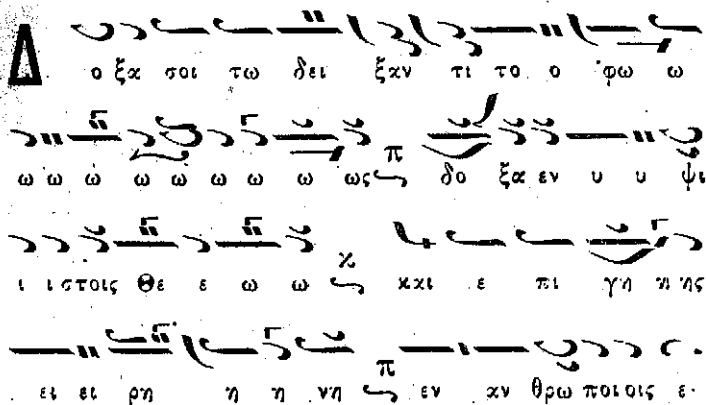 Δ ο ξα σοι τω δει ξαν τι το ο φω ω
ω ω ω ω ω ω ω ω ως π δο ξα εν υ υ ψι
ι ι στοις Θε ε ω ω κ και ε πι γη η ης
ει ει ρη η η νη π εν αν θρω ποι οις ε.